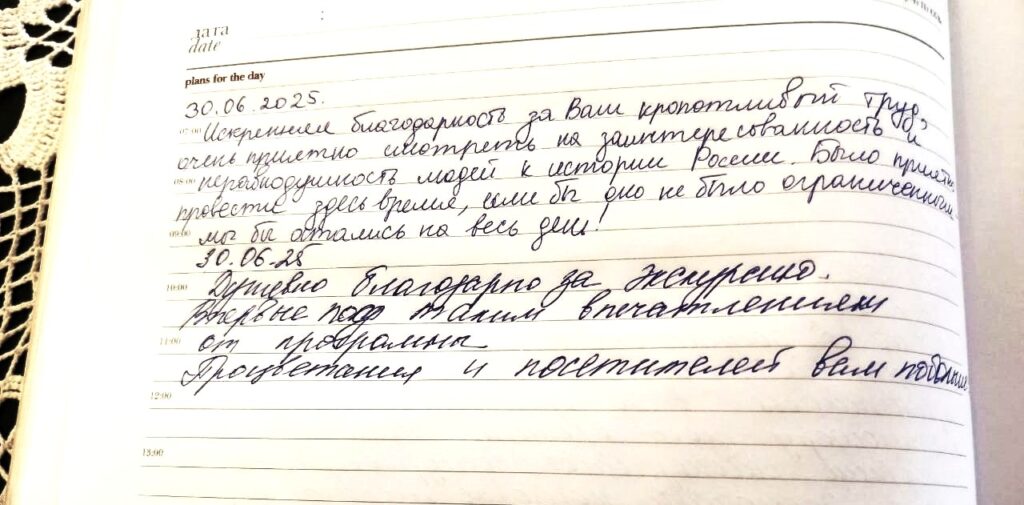 дата
date
plans for the day
30.06.2025.
07:00 Искренняя благодарность за Ваш кропотливый труд,
очень приятно смотреть на заинтересованность и
08:00 неравнодушность людей к истории России. Было приятно
провести здесь время, если бы оно не было ограниченным
09:00 мы бы остались на весь день!
30.06.25
10:00 Душевно благодарю за экскурсию.
Впервые под таким впечатлением
11:00 от программы.
Процветания и посетителей вам побольше
12:00
13:00